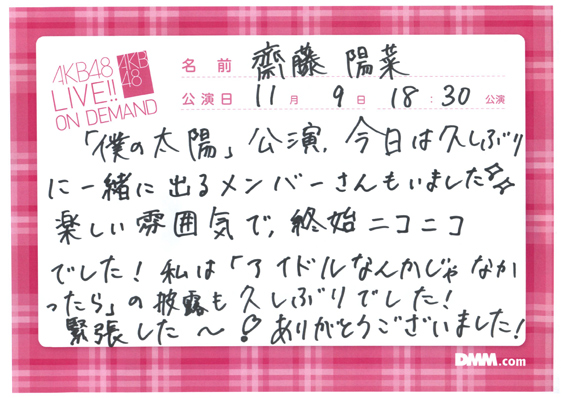 AKB48
LIVE!!
ON DEMAND
AKB
48
名前 齋藤 陽菜
公演日 11月 9日 18:30 公演
「僕の太陽」公演、今日は久しぶり
に一緒に出るメンバーさんもいました
楽しい雰囲気で、終始ニコニコ
でした！私は「アイドルなんかじゃなか
ったら」の披露も久しぶりでした！
緊張した〜 ありがとうございました！
DMM.com